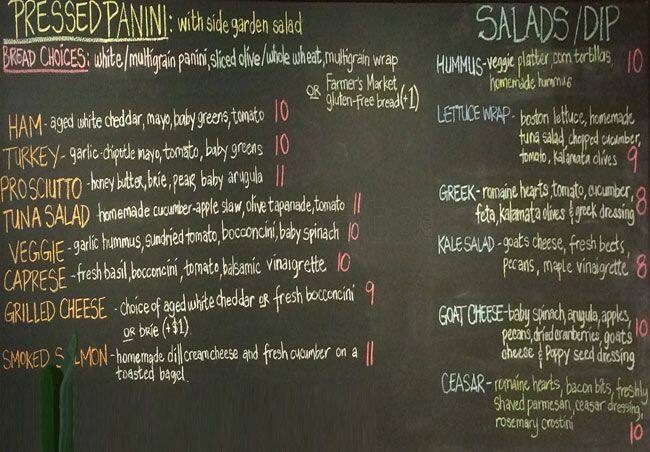 PRESSED PANINI: with side garden salad
BREAD CHOICES: white/multigrain panini, sliced olive/whole wheat, multigrain wrap
OR Farmer's Market
gluten-free bread (+1)
HAM - aged white cheddar, mayo, baby greens, tomato 10
TURKEY - garlic-chipotle mayo, tomato, baby greens 10
PROSCIUTTO - honey butter, brie, pear, baby arugula 11
TUNA SALAD - homemade cucumber-apple slaw, olive tapanade, tomato 11
VEGGIE - garlic hummus, sundried tomato, bocconcini, baby spinach 10
CAPRESE - fresh basil, bocconcini, tomato, balsamic vinaigrette 10
GRILLED CHEESE - choice of aged white cheddar OR fresh bocconcini 9
OR brie (+$1)
SMOKED SALMON - homemade dill creamcheese and fresh cucumber on a 11
toasted bagel
SALADS/DIP
HUMMUS - veggie platter, corn tortillas, 10
homemade hummus
LETTUCE WRAP - boston lettuce, homemade
tuna salad, chopped cucumber,
tomato, kalamata olives 9
GREEK - romaine hearts, tomato, cucumber, 8
feta, kalamata olives & greek dressing
KALE SALAD - goats cheese, fresh beets,
pecans, maple vinaigrette 8
GOAT CHEESE - baby spinach, arugula, apples,
pecans, dried cranberries, goats 10
cheese & Poppy seed dressing
CEASAR - romaine hearts, bacon bits, freshly
shaved parmesan, ceasar dressing,
rosemary crostini 10